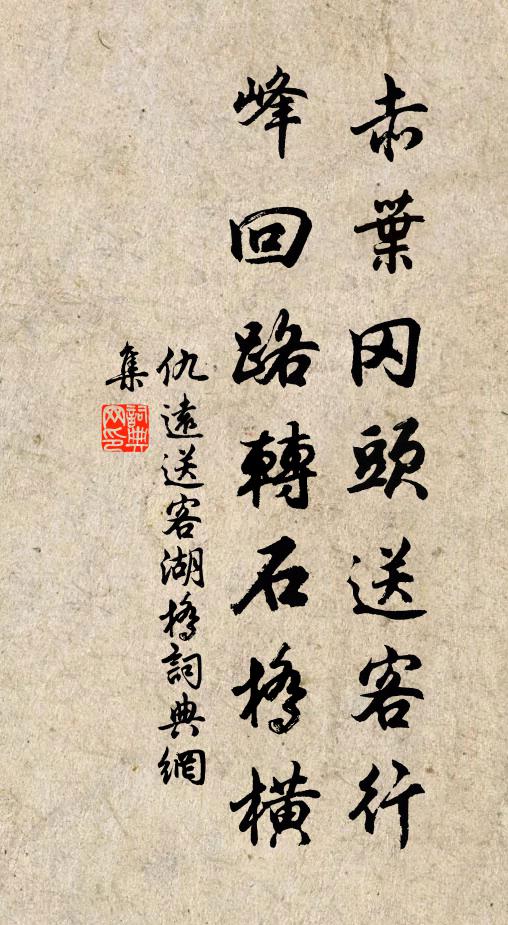 赤葉冈頭送客行
峰回路轉石橋橫
仇遠送客湖橋詞典網
集
詞典
網印